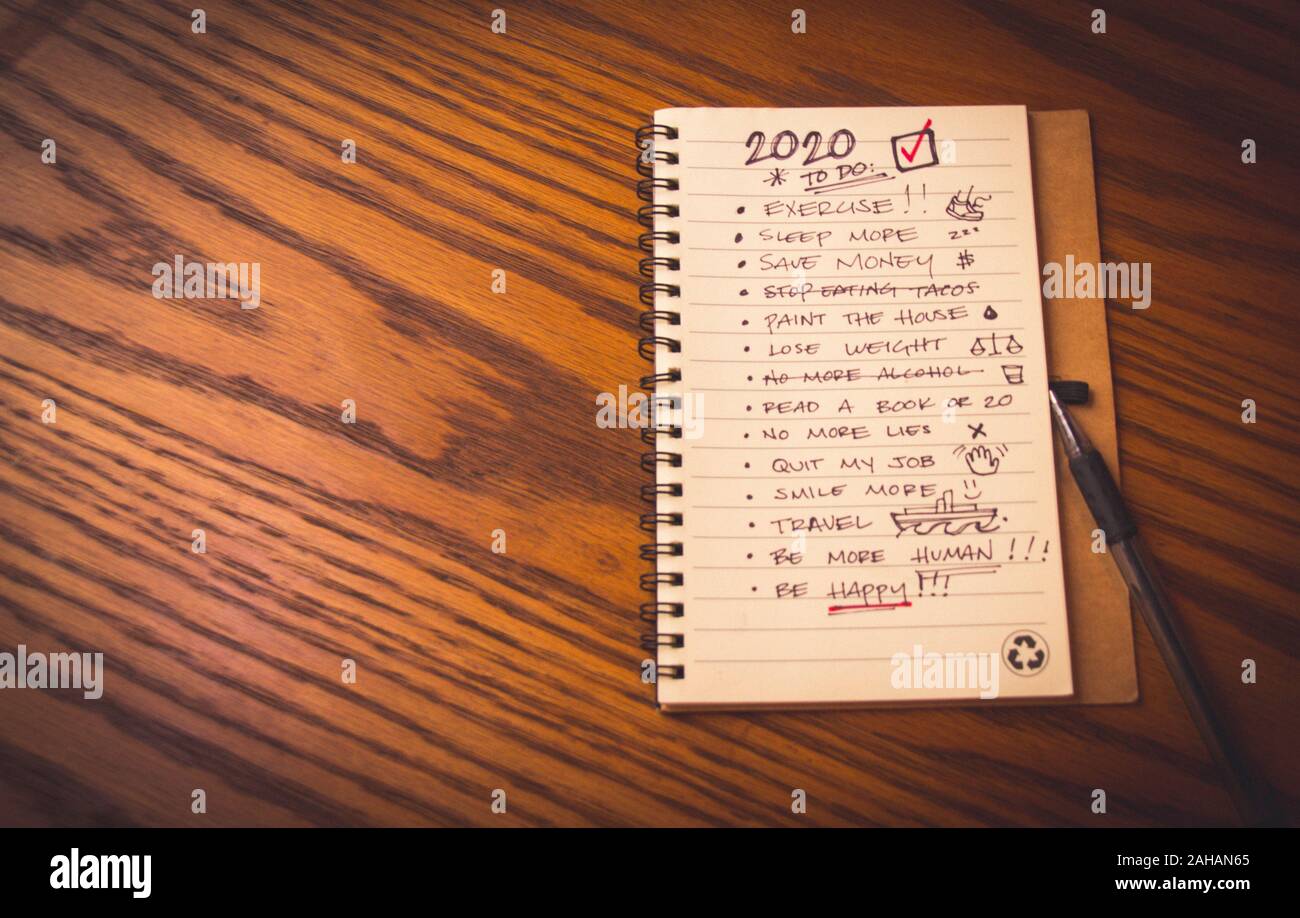 2020
* TO DO:
• EXERCISE!!
• SLEEP MORE zzz
• SAVE MONEY $
• STOP EATING TACOS
• PAINT THE HOUSE
• LOSE WEIGHT
• NO MORE ALCOHOL
• READ A BOOK OR 20
• NO MORE LIES X
• QUIT MY JOB
• SMILE MORE
• TRAVEL
• BE MORE HUMAN!!!
• BE HAPPY!!!
alamy
alamy
Image ID: 2AHAN65
www.alamy.com